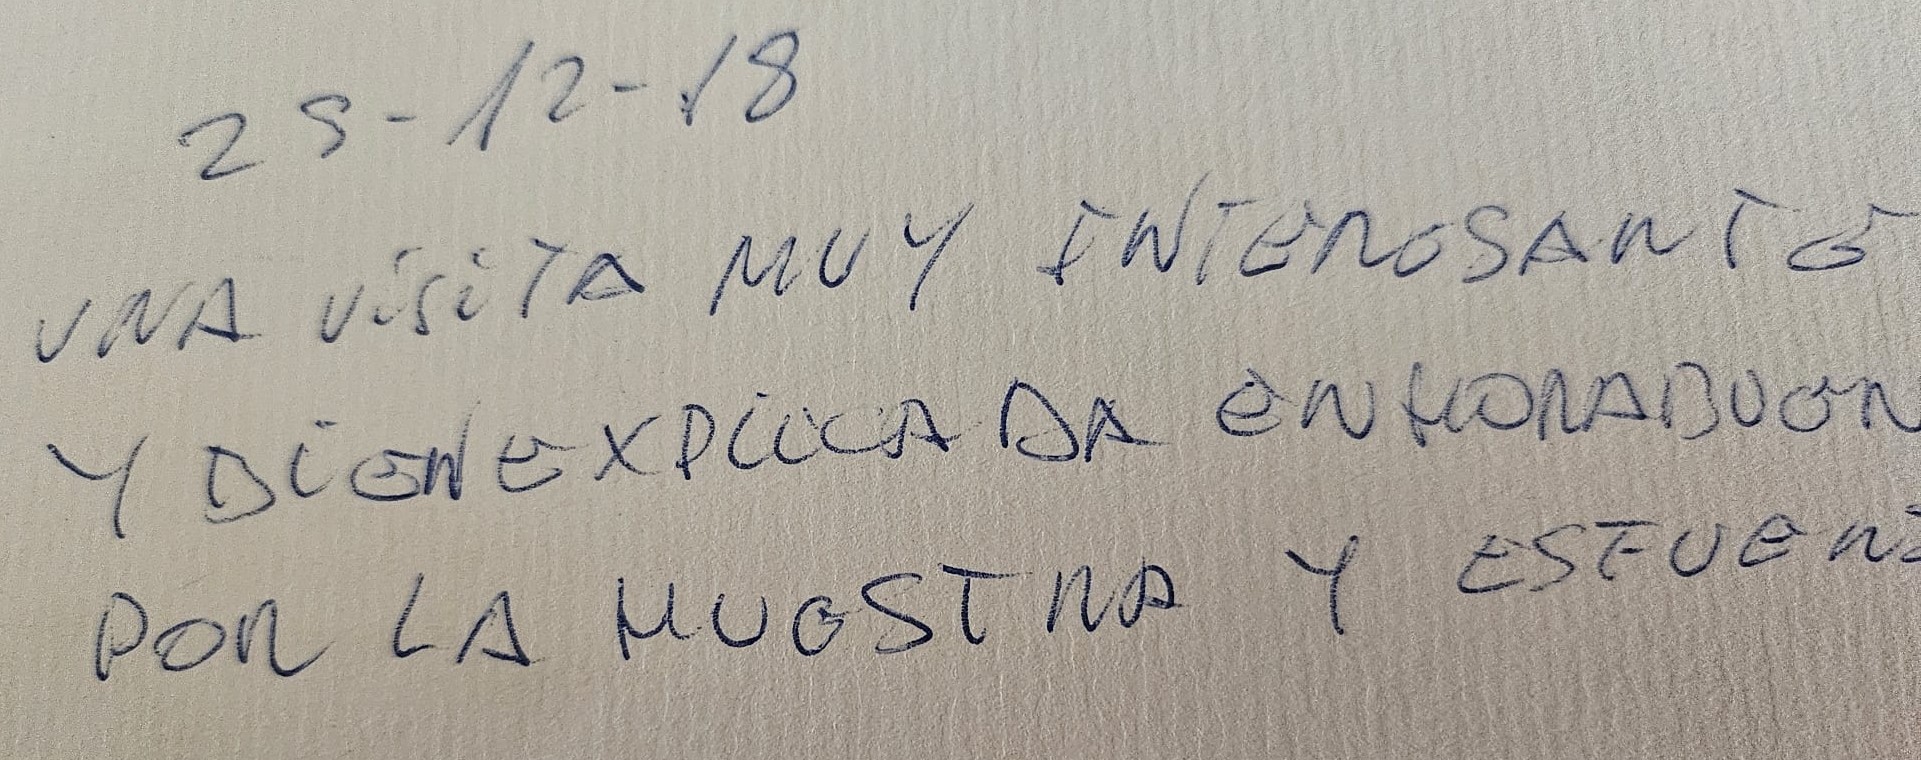 29-12-18
UNA VISITA MUY INTERESANTE
Y BIEN EXPLICADA ENHORABUEN
POR LA MUESTRA Y ESFUERZ